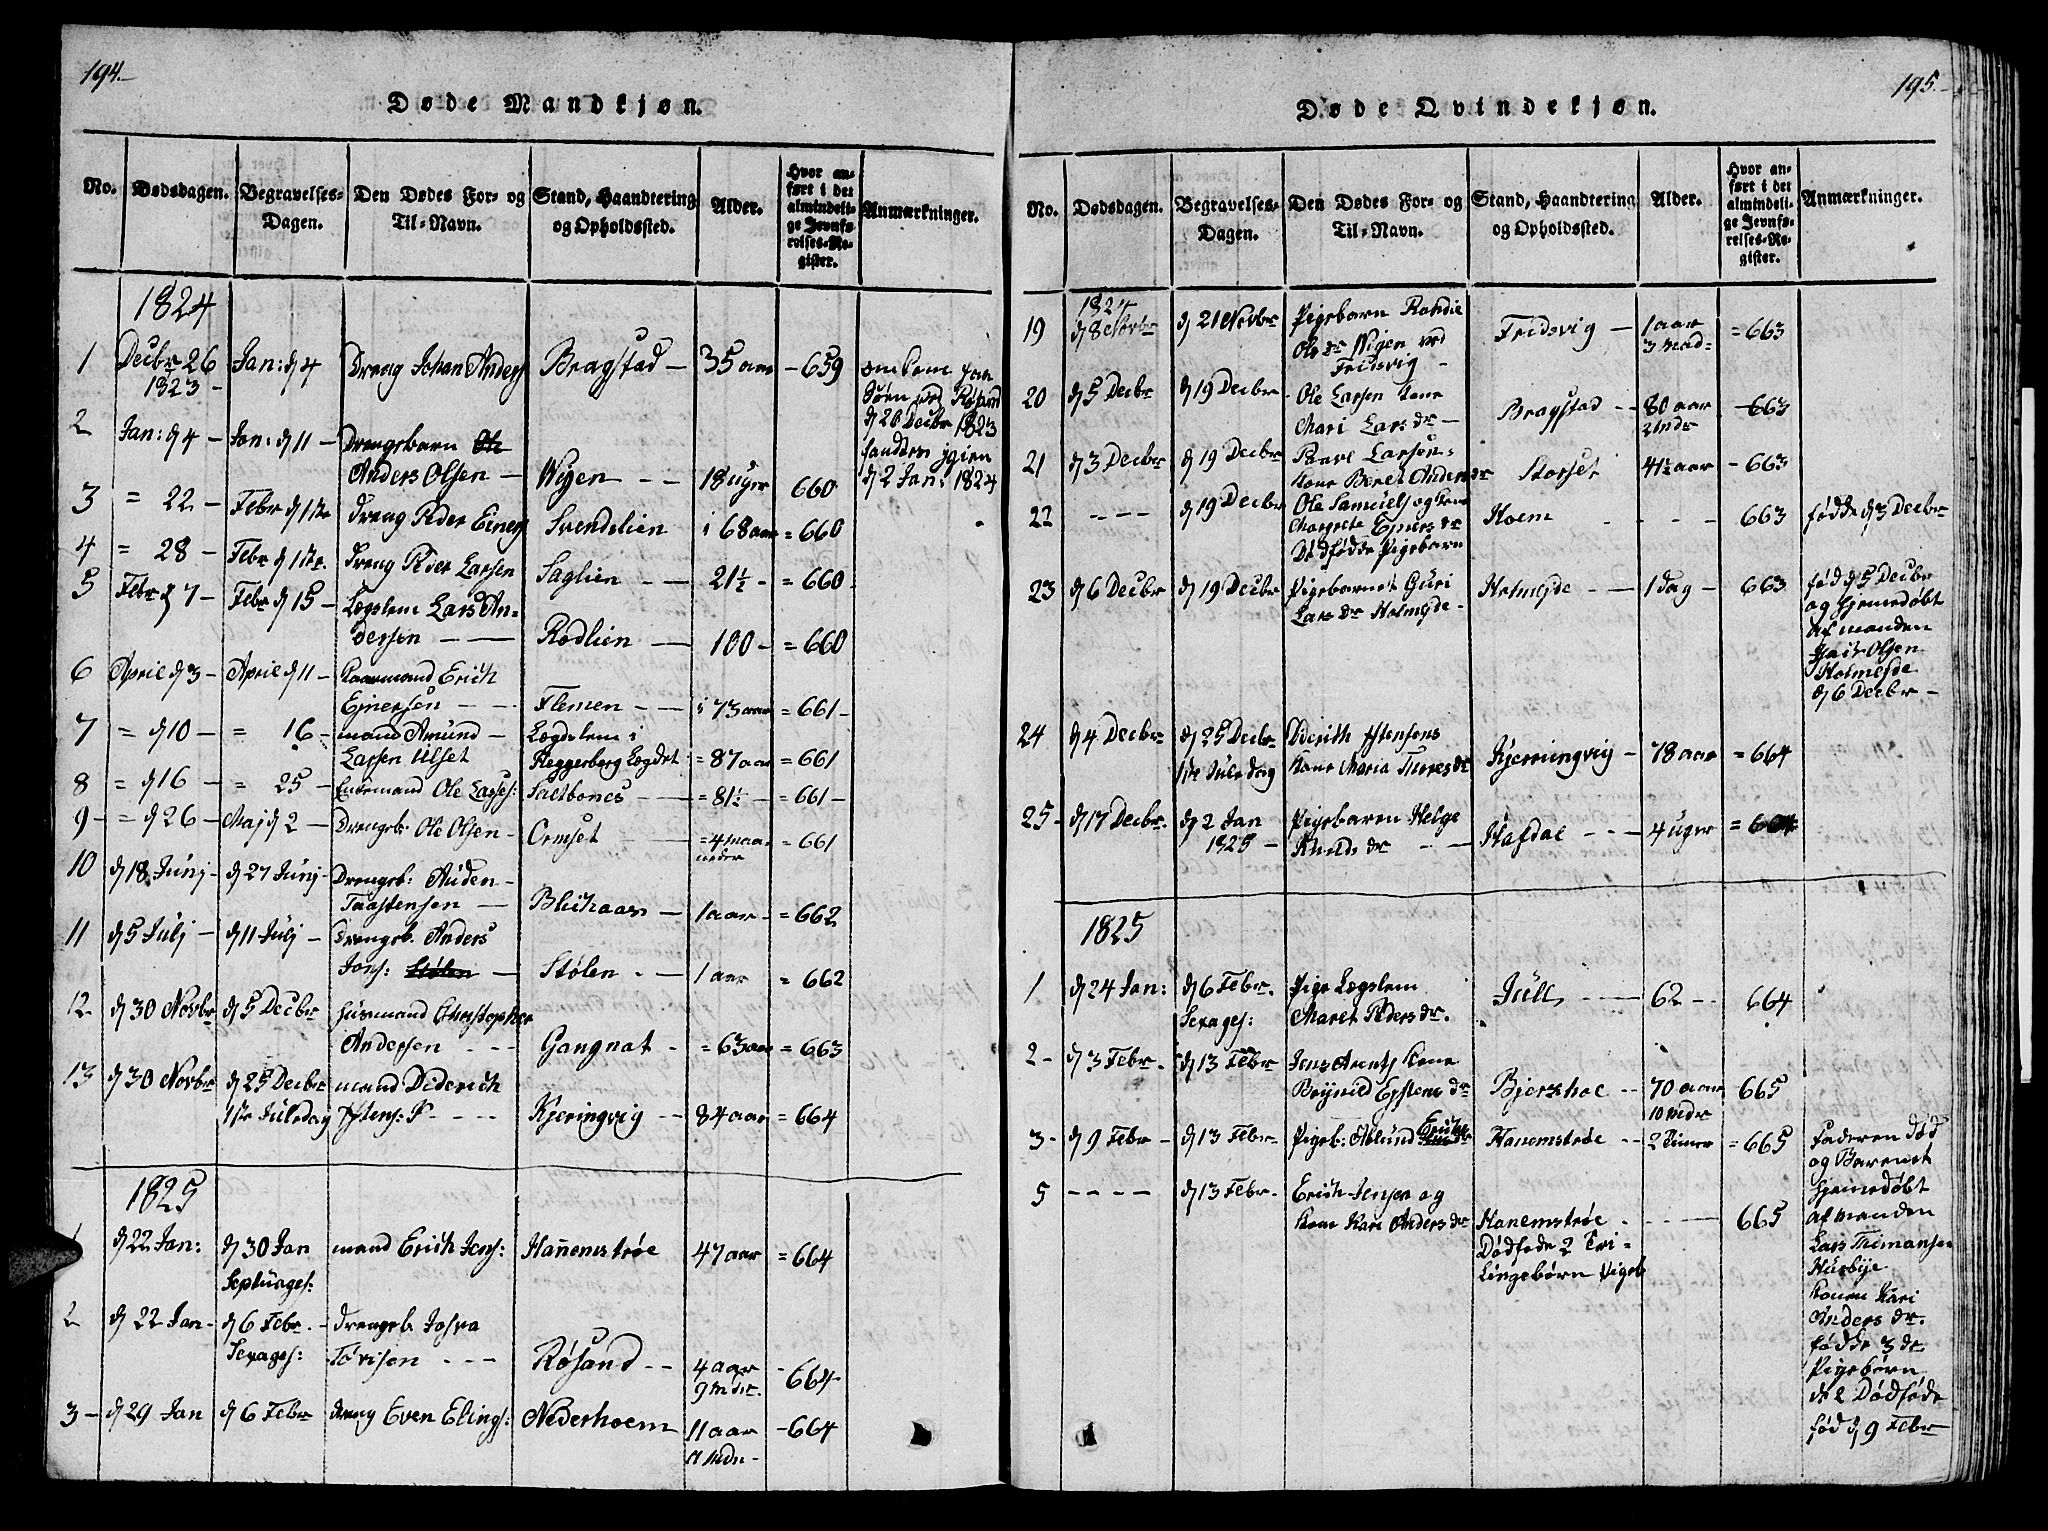 194.
Døde Mandkjøn.
No.
Dødsdagen.
Begravelses-
Dagen.
Den Dødes For- og
Til-Navn.
Stand, Haandtering
og Opholdssted.
Alder.
Hvor an-
ført i det
almindeli-
ge Jevnfø-
relses-Re-
gister.
Anmærkninger.
1824
1 Decbr 26 Jan: d 4 Dreng Johan Anders Bragstad - 35 aar - 659 omkom paa
1823 - Søen ved Røsand
d 26 Decbr 1823
2 Jan: d 4 - Jan: d 11 - Drengebarn Ole
Anders Olsen - Wigen - - 18 uger 660 d 2 Jan: 1824
3 = 22 - Febr d 1ste Dreng Peder Einers Svendslien i 68 aar = 660
4 = 28 - Febr d 1ste. Dreng Peder Larsen Saglien - - 21½ - = 660
5 Febr d 7 - Febr d 15 - Lægslem Lars An-
dersen - - Rødlien - 100 - = 660
6 April d 3 - April d 11 - Kaarmand Erich
Ejnersen - - Flemen - - i 73 aar = 661 -
7 = d 10 - = 16 - mand Amund - Lægdslem i
Larsen Ulset Heggerberg Lægdet = 87 aar = 661
8 = d 16 - = 25 - Enkemand Ole Larses: Saltbones - - = 81½ - = 661 -
9 - = d 26 - Maj d 2 - Drengeb: Ole Olsen - Ormset - = 4 maa- = 661
neder
10 d 18 Junj - d 27 Junj - Drengeb: Auden -
Taastensen - Blichaas - 1 aar - = 662
11 d 5 Julj - d 11 Julj - Drengeb. Anders
Jons: Stølen - Stølen - - 1 aar = 662
12 d 30 Novbr d 5 Decbr Huusmand Christopher
Andersen - - Gangnat - = 63 aar = 663
13 d 30 Novbr d 25 Decbr mand Diderich
1ste Juledag Kjeringvig - - 84 aar = 664
1825
1 d 22 Jan: d 30 Jan mand Erich Jens: Hanemstrøe 47 aar = 664
Septuages:
2 d 22 Jan - d 6 Febr. - Drengeb. Josva
Sexages: Tørrisen - - - Røsand - - 4 aar - 664 -
9 mdr.
3 - d 29 Jan d 6 Febr Dreng Even Elings: Nederhoem 11 aar - 664
11 mdr -
195.
Døde Qvindekjøn.
No.
Dødsdagen.
Begravelses-
Dagen.
Den Dødes For- og
Til-Navn.
Stand, Haandtering
og Opholdssted.
Alder.
Hvor an-
ført i det
almindeli-
ge Jevnfø-
relses-Re-
gister.
Anmærkninger.
1824
19 d 8 Novbr d 21 Novbr Pigebarn Randie Fredsvig - 1 aar = 663
Ols dr Wigen ved 3 mad -
Fredsvig -
20 d 5 Decbr d 19 Decbr - Ole Larsen Kone Bragstad - - 80 aar - 663
Mari Lars dr - 2 mdr
21 d 3 Decbr d 19 Decbr Paavel Larsens
Kone Beret Anders dr Storset 41½ aar - 663
22 - - - d 19 Decbr Ole Samuels og Kone Hoem - - - 663 fødde d 3 Decbr
Margrete Ejners dr
Dødfødde Pigebarn
23 d 6 Decbr d 19 Decbr Pigebarnet Guri Holmeyde - - 1 dag - 663 fød d 5 Decbr
Lars dr Holmeyde - og hjemedøbt
af manden
Olsen
Holmeyde
d 6 Decbr -
24 d 4 Decbr d 25 Decbr
1ste Juledag Kone Maria Tores dr Kjerringvig - 78 aar = 664
25 - d 17 Decbr. d 2 Jan Pigebaren Helge
1825 - Knuds dr - - Hafdal - - - 4 uger = 664
1825
1 d 24 Jan: d 6 Febr. Pige Lægslem Jüll - - 62 - - 664
Sexages: Maret Peders dr.
2 - d 3 Febr. d 13 Febr Jens Arents Kone
Brynild Eystens dr Bjerkhoe - - 70 aar 665
10 mdr
3 - d 9 Febr - d 13 Febr - Pigeb: Ablund Erichs dr Hanemstrøe - - 2 Timer = 665 Faderen død
og Barenet
5 - - - - d 13 Febr - Erich Jenses og hjemedøbt
Kone Kari Anders dr Hanemstrøe - - - 665 af manden
Dødføde 2 Tvi- Lars Thomansen
lingebørn Pigeb Husbye
Konen Kari
Anders dr.
fødde 3 de
Pigebørn
de 2 Dødføde
fød d 9 Febr